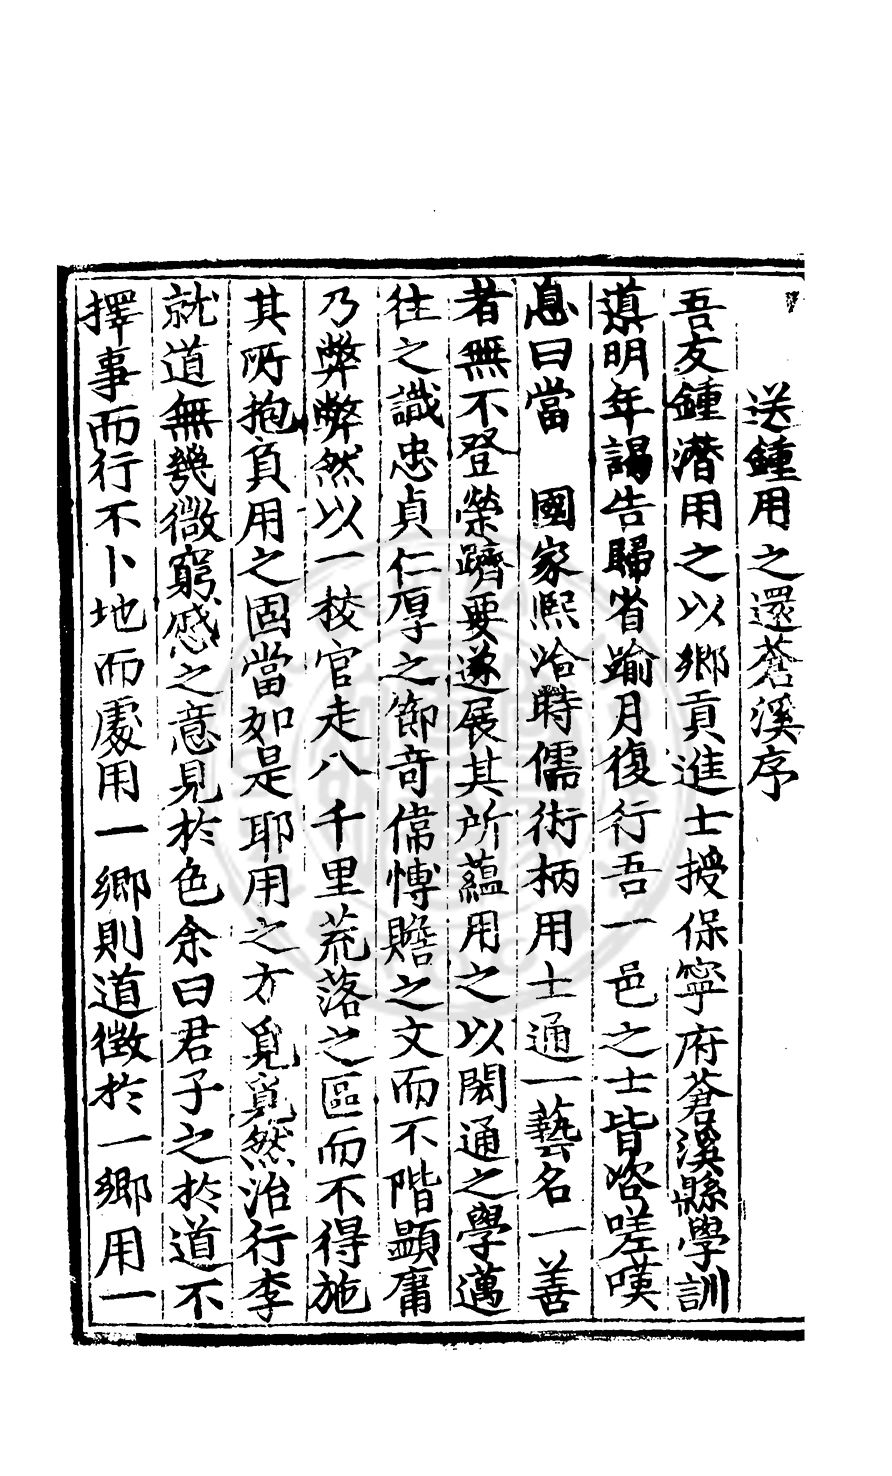 送鍾用之還蒼溪序
吾友鍾潛用之以鄉貢進士授保寧府蒼溪縣學訓
導明年謁告歸省踰月復行吾一邑之士皆咨嗟嘆
息曰當　國家熙洽時儒術柄用士通一藝名一善
者無不登榮躋要遂展其所蘊用之以閎通之學邁
往之識忠貞仁厚之節奇偉博贍之文而不階顯庸
乃弊弊然以一校官走八千里荒落之區而不得施
其所抱負用之固當如是耶用之方覓覓然治行李
就道無幾微窮慼之意見於色余曰君子之於道不
擇事而行不卜地而處用一鄉則道徵於一鄉用一